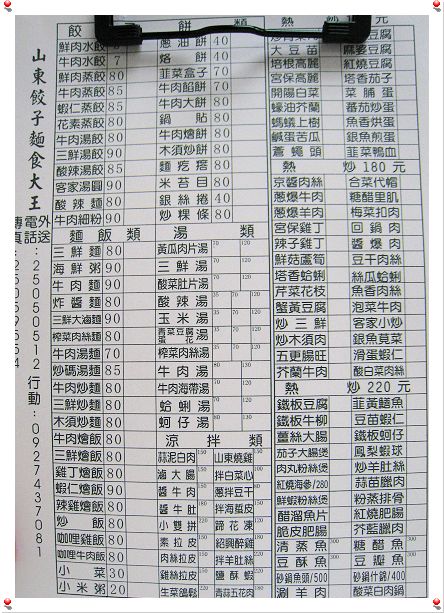 山東餃子麵食大王
外送電話:25050512 行動:0927437081
傳真:
餃
鮮肉水餃
牛肉水餃 7
鮮肉蒸餃 80
牛肉蒸餃 80
蝦仁蒸餃 85
花素蒸餃 80
牛肉湯餃 90
三鮮湯餃 90
酸辣湯餃 85
客家湯圓 90
酸辣麵 80
牛肉細粉 90
餅
蔥油餅 40
烙餅 40
韭菜盒子 70
牛肉餡餅 70
牛肉大餅 80
鍋貼 80
牛肉燴餅 80
木須炒餅 80
麵疙瘩 80
米苔目 80
銀絲捲 40
炒粿條 80
麵飯類
三鮮麵 80
海鮮粥 90
牛肉麵 90
炸醬麵 80
三鮮大滷麵 90
榨菜肉絲麵 80
牛肉湯麵 70
炒碼湯麵 85
牛肉炒麵 80
三鮮炒麵 80
木須炒麵 80
牛肉燴飯 80
三鮮燴飯 80
雞丁燴飯 80
蝦仁燴飯 90
辣雞燴飯 80
炒飯 80
咖哩雞飯 80
咖哩牛肉飯 80
小菜 30
小米粥 20
湯類
黃瓜肉片湯 70 120
三鮮湯 70 120
酸菜肚片湯 70 120
酸辣湯 35 70 120
玉米湯 35 70 120
青菜豆腐湯 蛋花
榨菜肉絲湯
牛肉湯
牛肉海帶湯 70 120
蛤蜊湯 70 120
蚵仔湯 70 120
涼拌類
蒜泥白肉 山東燒雞
滷大腸 拌白菜心
醬牛肉 蔥拌豆干
醬牛肚 拌海蜇皮
小雙拼 蹄花凍
素拉皮 紹興醉雞
肉絲拉皮 拌羊肚絲
雞絲拉皮 鹽酥蝦
生菜鴿鬆 青蒜五花肉
熱炒 元
大豆苗 麻婆豆腐
培根高麗 紅燒豆腐
宮保高麗 塔香茄子
開陽白菜 菜脯蛋
蠔油芥蘭 番茄炒蛋
螞蟻上樹 魚香烘蛋
鹹蛋苦瓜 銀魚煎蛋
蒼蠅頭 韭菜鴨血
熱炒180元
京醬肉絲 合菜代帽
蔥爆牛肉 糖醋里肌
蔥爆羊肉 梅菜扣肉
宮保雞丁 回鍋肉
辣子雞丁 醬爆肉
鮮菇蘆筍 豆干肉絲
塔香蛤蜊 絲瓜蛤蜊
芹菜花枝 魚香肉絲
蟹黃豆腐 泡菜牛肉
炒三鮮 客家小炒
炒木須肉 銀魚莧菜
五更腸旺 滑蛋蝦仁
芥蘭牛肉 酸白菜肉絲
熱炒220元
鐵板豆腐 韭黃鱔魚
鐵板牛柳 豆苗蝦仁
薑絲大腸 鐵板蚵仔
茄子大腸煲 鳳梨蝦球
肉丸粉絲煲 炒羊肚絲
紅燒海參/280 蒜苗臘肉
鮮蝦粉絲煲 粉蒸排骨
醋溜魚片 紅燒肥腸
脆皮肥腸 芥藍臘肉
清蒸魚 300 糖醋魚 300
豆酥魚 300 豆瓣魚 300
砂鍋魚頭/500 砂鍋什錦/400
涮羊肉 酸菜白肉鍋